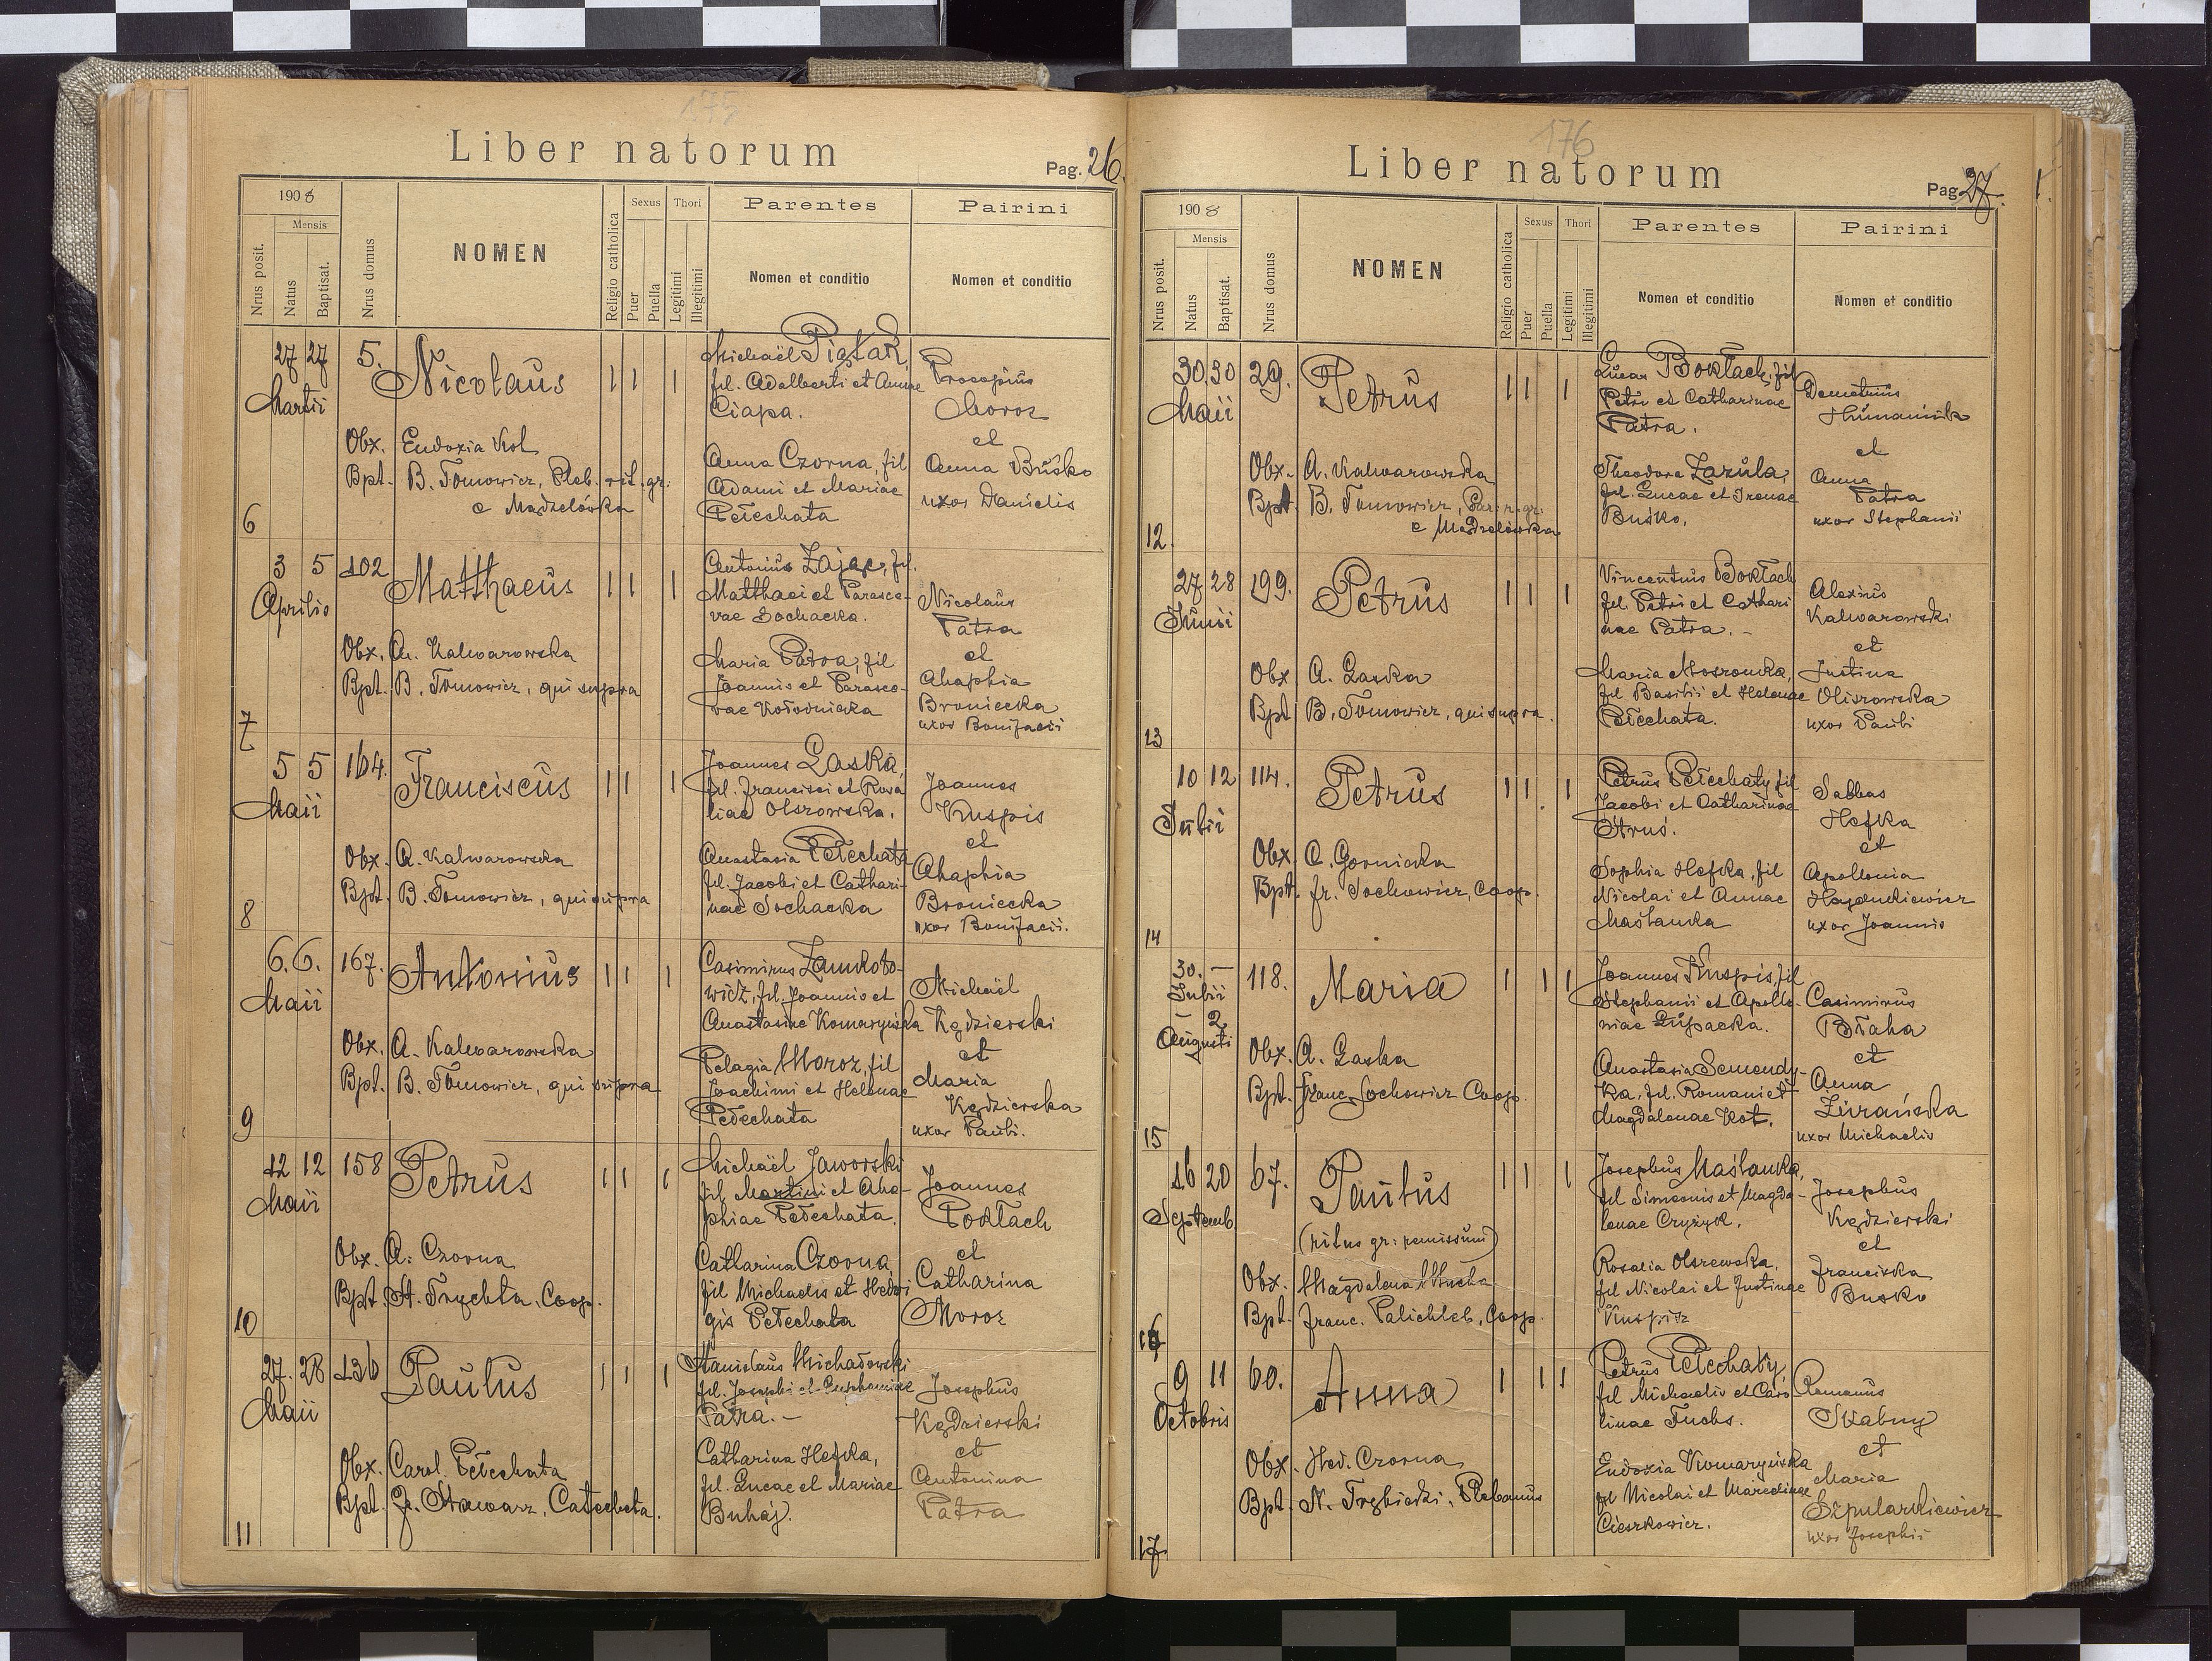 175
Liber natorum
Pag. 26.
1908
Mensis
Nrus posit.
Natus
Baptisat.
Nrus domus
NOMEN
Religio catholica
Sexus
Puer
Puella
Thori
Legitimi
Illegitimi
Parentes
Nomen et conditio
Pairini
Nomen et conditio
6
27 27
Martii
5.
Nicolaus
1 1 1
Obx. Eudoxia Kot
Bpt. B. Tomowicz, Pleb. rit. gr.
e Madzelówka
Michaël Piątak
fil. Adalberti et Annae
Ciapa.
Anna Czorna, fil
Adami et Mariae
Pełechata
Procopius
Moroz
et
Anna Buśko
uxor Danielis
7
3 5
Aprilis
102
Matthaeus
1 1 1
Obx. A. Kalwarowska
Bpt. B. Tomowicz, qui supra
Antonius Zając, fil.
Matthaei et Parasce-
vae Sochacka.
Maria Patra, fil
Joannis et Parasce-
vae Kołodnicka
Nicolaus
Patra
et
Ahaphia
Broniecka
uxor Bonifacii
8
5 5
Maii
164.
Franciscus
1 1 1
Obx. A. Kalwarowska
Bpt. B. Tomowicz, qui supra
Joannes Laska,
fil. Francisci et Rosa
liae Olszowska.
Anastasia Pełechata
fil. Jacobi et Cathari-
nae Sochacka
Joannes
Knuspis
et
Ahaphia
Broniecka
uxor Bonifacii.
9
6. 6.
Maii
167.
Antonius
1 1 1
Obx. A. Kalwarowska
Bpt. B. Tomowicz, qui supra
Casimirus Zamkoto-
wicz, fil. Joannis et
Anastasiae Komaryńska
Pelagia Moroz, fil
Joachimi et Helenae
Pełechata
Michaël
Kędzierski
et
Maria
Kędzierska
uxor Pauli.
10
12 12
Maii
158
Petrus
1 1 1
Obx. A. Czorna
Bpt. St. Trzyckta, Coop.
Michaël Jaworski
fil. Martini et Aha-
phiae Pełechata.
Catharina Czorna,
fil Michaelis et Hedwi
gis Pełechata
Joannes
Bokłach
et
Catharina
Moroz
11
27. 28
Maii
136
Paulus
1 1 1
Obx. Carol. Pełechata
Bpt. J. Stawarz, Catecheta.
Stanislaus Michadowski
fil. Josephi et Euphemiae
Patra. –
Catharina Hefka,
fil. Lucae et Mariae
Buhaj.
Josephus
Kędzierski
et
Antonina
Patra
176
Liber natorum
Pag. 27.
1908
Mensis
Nrus posit.
Natus
Baptisat.
Nrus domus
NOMEN
Religio catholica
Sexus
Puer
Puella
Thori
Legitimi
Illegitimi
Parentes
Nomen et conditio
Pairini
Nomen et conditio
12.
30. 30
Maii
29.
Petrus
1 1 1
Obx. A. Kalwarowska
Bpt. B. Tomowicz, Par. r. gr.
e Madzelówka
Lucas Bokłach, fil
Petri et Catharinae
Patra.
Theodora Zazula,
fil. Lucae et Irenae
Buśko.
Demetrius
Humaniuk
et
Anna
Patra
uxor Stephani
13
27 28
Junii
199.
Petrus
1 1 1
Obx A. Laska
Bpt B. Tomowicz, qui supra.
Vincentius Bokłach
fil. Petri et Cathari
nae Patra. –
Maria Mosronka,
fil Basilii et Helenae
Pełechata.
Alexius
Kalwarowski
et
Justina
Olszowska
uxor Pauli
14
10 12
Julii
114.
Petrus
1 1 1
Obx. A. Gornicka
Bpt. Fr. Sochowicz, Coop.
Petrus Pełechaty fil
Jacobi et Catharinae
Struś.
Sophia Hefka, fil
Nicolai et Annae
Maślanka
Sabbas
Hefka
et
Apollonia
Hajdukiewicz
uxor Joannis
15
30. –
Julii
– 2
Augusti
118.
Maria
1 1 1
Obx. A. Laska
Bpt. Franc. Sochowicz Coop.
Joannes Knuspis, fil
Stephanii et Apollo-
niae Łupacka.
Anastasia Semendy-
ka, fil. Romani et
Magdalenae Kot.
Casimirus
Błaha
et
Anna
Żurańska
uxor Michaelis
16
16 20
Septemb
67.
Paulus
(ritus gr: remissum)
1 1 1
Obx. Magdalena Mucha
Bpt. Franc. Palichleb, Coop.
Josephus Maślanka,
fil Simeonis et Magda-
lenae Cryżyk.
Rosalia Olszewska,
fil Nicolai et Justinae
Knuspis
Josephus
Kędzierski
et
Franciska
Busko
17.
9 11
Octobris
60.
Anna
1 1 1
Obx. Hed. Czorna
Bpt. N. Trzbicki, Plebanus
Petrus Pełechaty,
fil Michaelis et Caro
linae Fuchs.
Eudoxia Komaryńska
fil Nicolai et Marcelinae
Cieszkowicz.
Romanus
Skabny
et
Maria
Szpularkiewicz
uxor Josephii